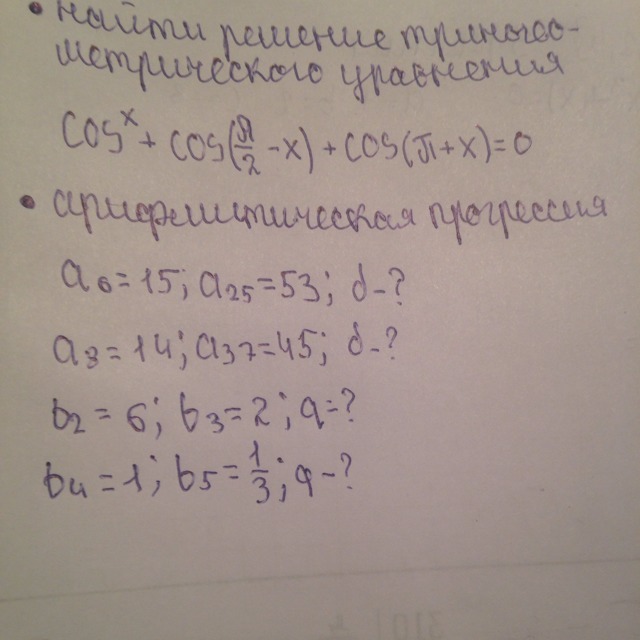 • найти решение тригоно-
метрического уравнения
cos^x + cos(π/2 - x) + cos(π + x) = 0
• арифметическая прогрессия
a6 = 15; a25 = 53; d - ?
a3 = 14; a37 = 45; d - ?
b2 = 6; b3 = 2; q = ?
b4 = 1; b5 = 1/3; q - ?